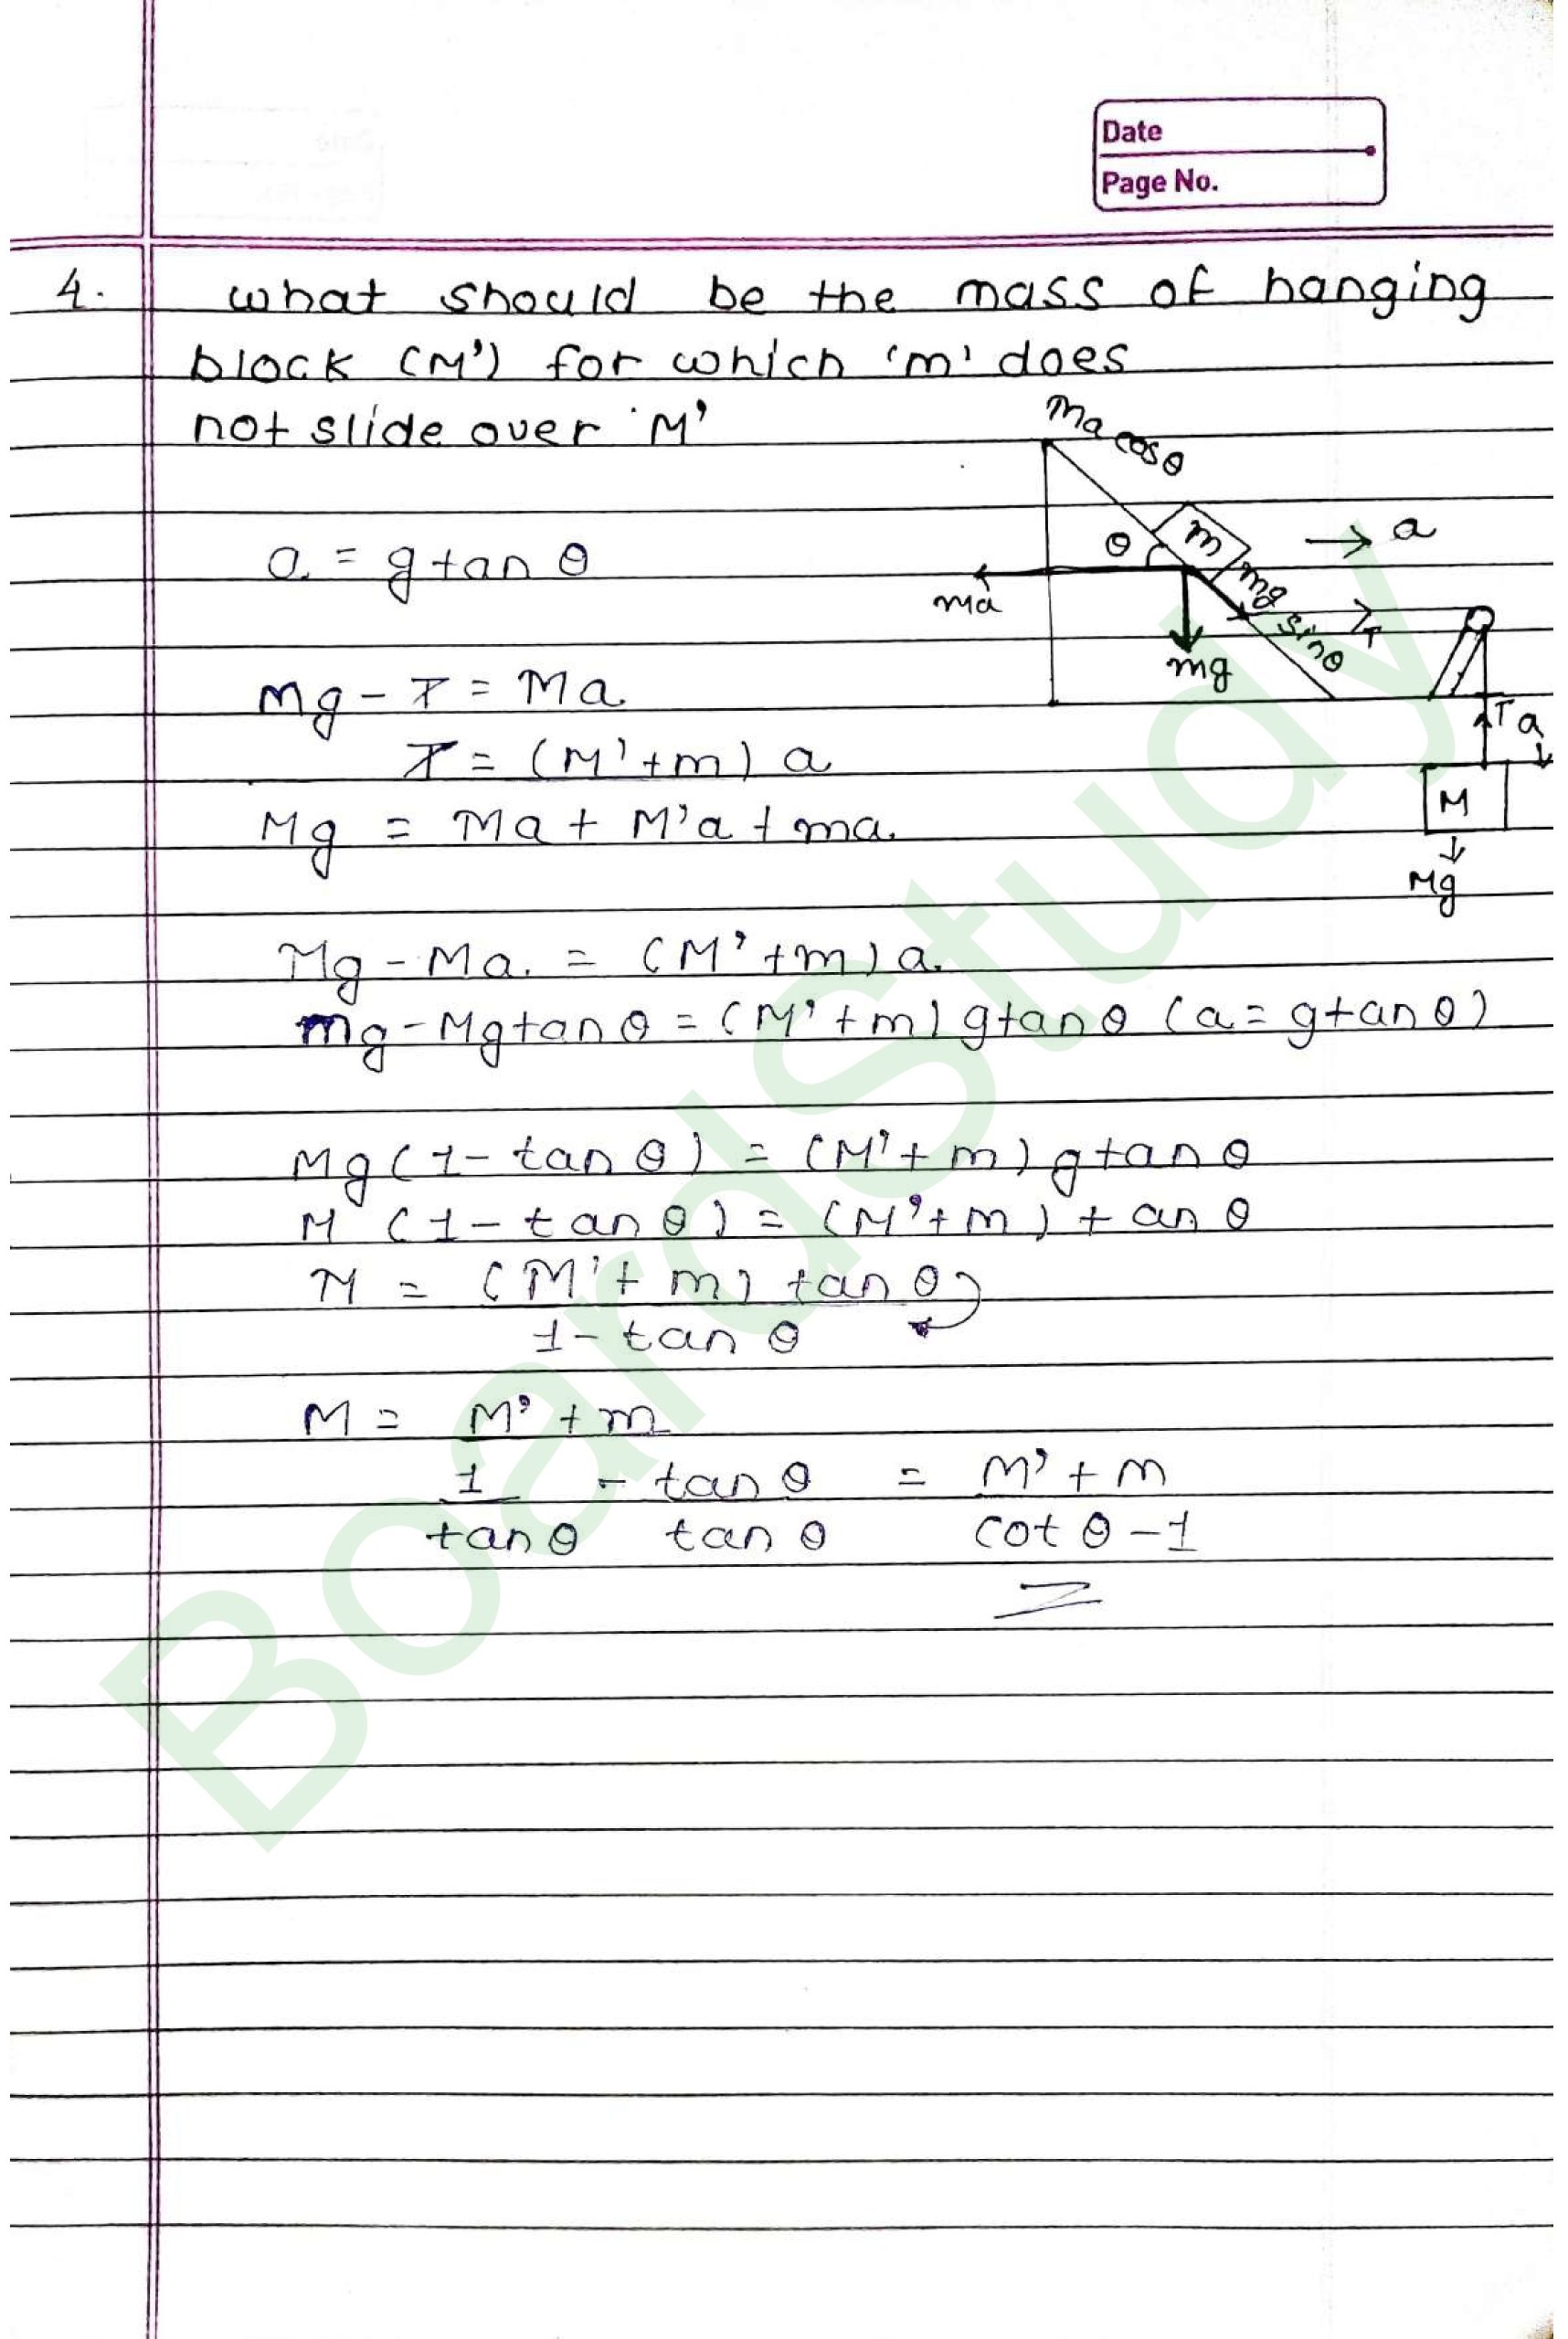 Date
Page No.
4. what should be the mass of hanging
block (M') for which 'm' does
not slide over 'M'
ma cosθ
θ
m
→ a
ma
mg
mg sinθ
T
a = g tan θ
T a
M
Mg
mg - T = Ma
T = (M' + m) a
Mg = Ma + M'a + ma.
Mg - Ma. = (M' + m) a.
mg - Mg tan θ = (M' + m) g tan θ (a = g tan θ)
Mg (1 - tan θ) = (M' + m) g tan θ
M (1 - tan θ) = (M' + m) tan θ
M = (M' + m) tan θ
1 - tan θ
M = M' + m
1 - tan θ = M' + m
tan θ tan θ cot θ - 1
BoardStudy